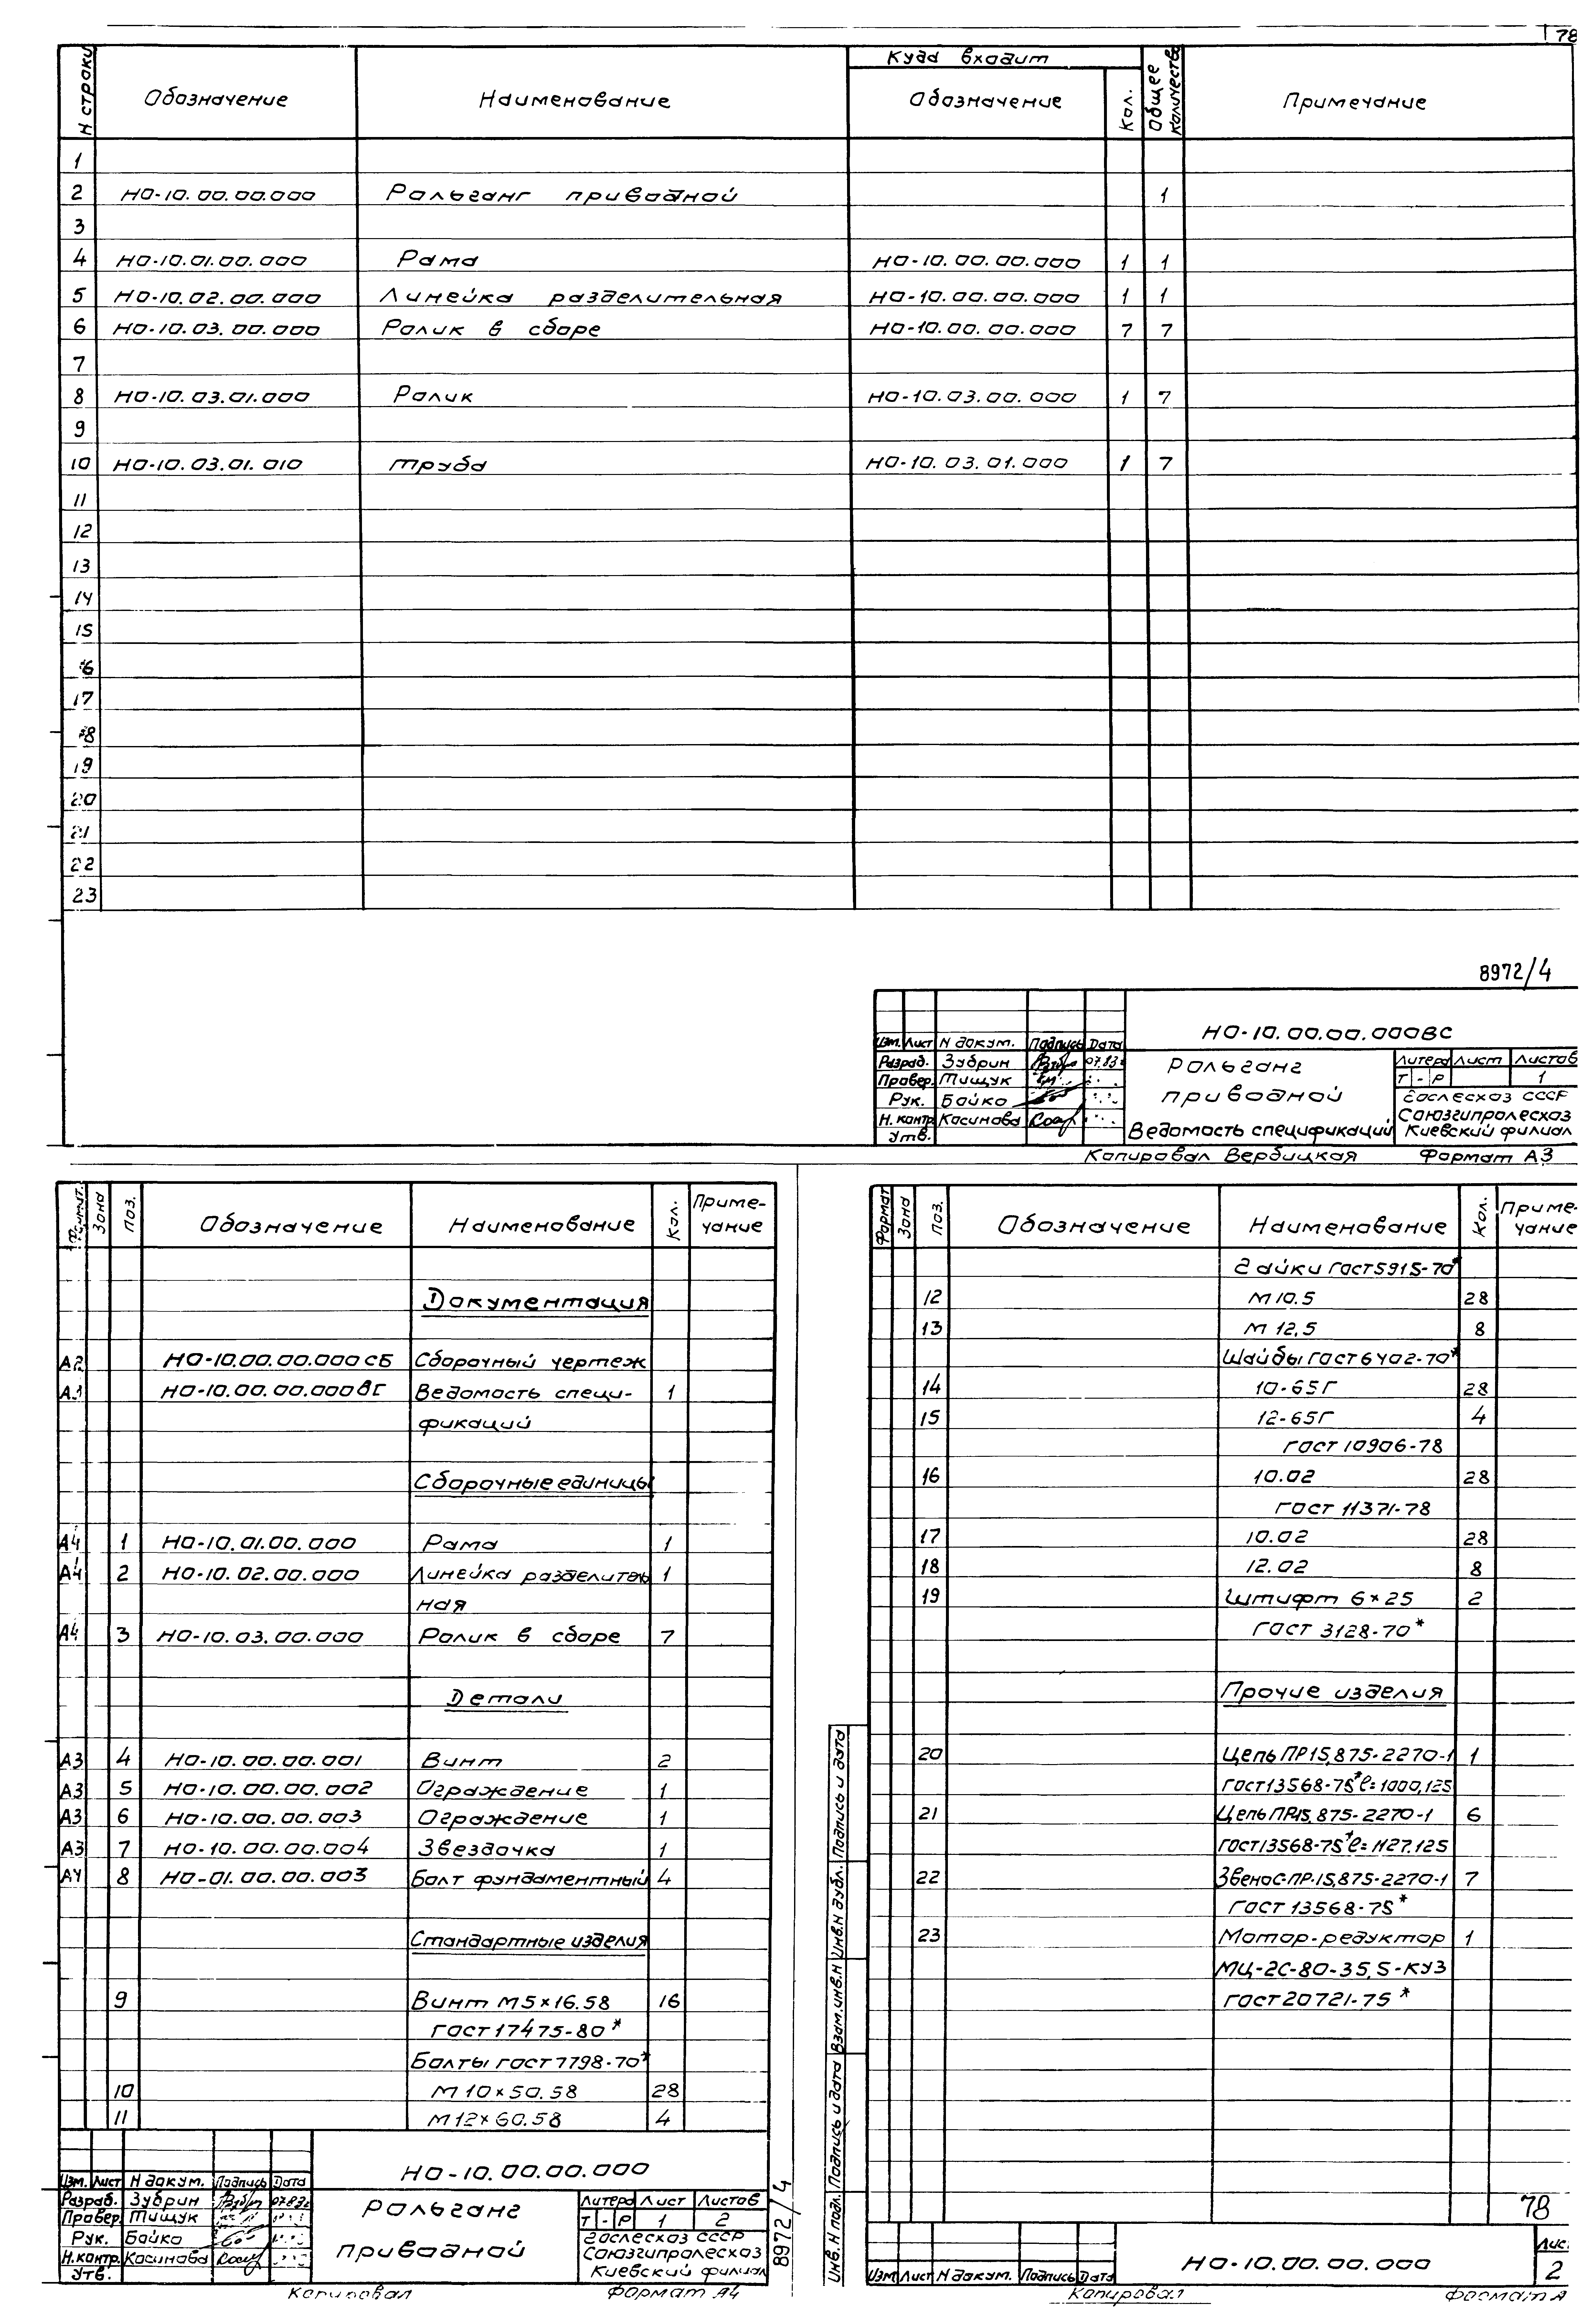 78
N строки
Обозначение
Наименование
Куда входит
Обозначение
Кол.
Общее количество
Примечание
1
2 НО-10.00.00.000 Рольганг приводной 1
3
4 НО-10.01.00.000 Рама НО-10.00.00.000 1 1
5 НО-10.02.00.000 Линейка разделительная НО-10.00.00.000 1 1
6 НО-10.03.00.000 Ролик в сборе НО-10.00.00.000 7 7
7
8 НО-10.03.01.000 Ролик НО-10.03.00.000 1 7
9
10 НО-10.03.01.010 Труба НО-10.03.01.000 1 7
11
12
13
14
15
16
17
18
19
20
21
22
23
8972/4
НО-10.00.00.000ВС
Изм. Лист N докум. Подпись Дата
Разраб. Зубрин 07.83
Провер. Тищук
Рук. Бойко
Н. контр. Косинова
Утв.
Рольганг
приводной
Ведомость спецификаций
Литера Лист Листов
Т - Р 1
Гослесхоз СССР
Союзгипролесхоз
Киевский филиал
Копировал Вербицкая Формат А3
Формат Зона Поз. Обозначение Наименование Кол. Приме-
чание
Документация
А2 НО-10.00.00.000СБ Сборочный чертеж
А3 НО-10.00.00.000ВС Ведомость специ- 1
фикаций
Сборочные единицы
А4 1 НО-10.01.00.000 Рама 1
А4 2 НО-10.02.00.000 Линейка разделитель 1
ная
А4 3 НО-10.03.00.000 Ролик в сборе 7
Детали
А3 4 НО-10.00.00.001 Винт 2
А3 5 НО-10.00.00.002 Ограждение 1
А3 6 НО-10.00.00.003 Ограждение 1
А3 7 НО-10.00.00.004 Звездочка 1
А4 8 НО-01.00.00.003 Болт фундаментный 4
Стандартные изделия
9 Винт М5×16.58 16
ГОСТ 17475-80*
Болты ГОСТ 7798-70*
10 М10×50.58 28
11 М12×60.58 4
НО-10.00.00.000
Изм. Лист N докум. Подпись Дата
Разраб. Зубрин 07.83
Провер. Тищук
Рук. Бойко
Н. контр. Косинова
Утв.
Рольганг
приводной
Литера Лист Листов
Т - Р 1 2
Гослесхоз СССР
Союзгипролесхоз
Киевский филиал
Копировал Формат А4
8972/4
Формат Зона Поз. Обозначение Наименование Кол. Приме-
чание
Гайки ГОСТ 5915-70*
12 М10.5 28
13 М12.5 8
Шайбы ГОСТ 6402-70*
14 10-65Г 28
15 12-65Г 4
ГОСТ 10906-78
16 10.02 28
ГОСТ 11371-78
17 10.02 28
18 12.02 8
19 Штифт 6×25 2
ГОСТ 3128-70*
Прочие изделия
20 Цепь ПР15,875-2270-1 1
ГОСТ 13568-75* ℓ=1000,125
21 Цепь ПР15,875-2270-1 6
ГОСТ 13568-75* ℓ=1127.125
22 Звено С-ПР-15,875-2270-1 7
ГОСТ 13568-75*
23 Мотор-редуктор 1
МЦ-2С-80-35,5-КУ3
ГОСТ 20721-75*
Инв. N подл. Подпись и дата Взам. инв. N Инв. N дубл. Подпись и дата
78
Изм Лист N докум. Подпись Дата
НО-10.00.00.000
Лис
2
Копировал Формат А